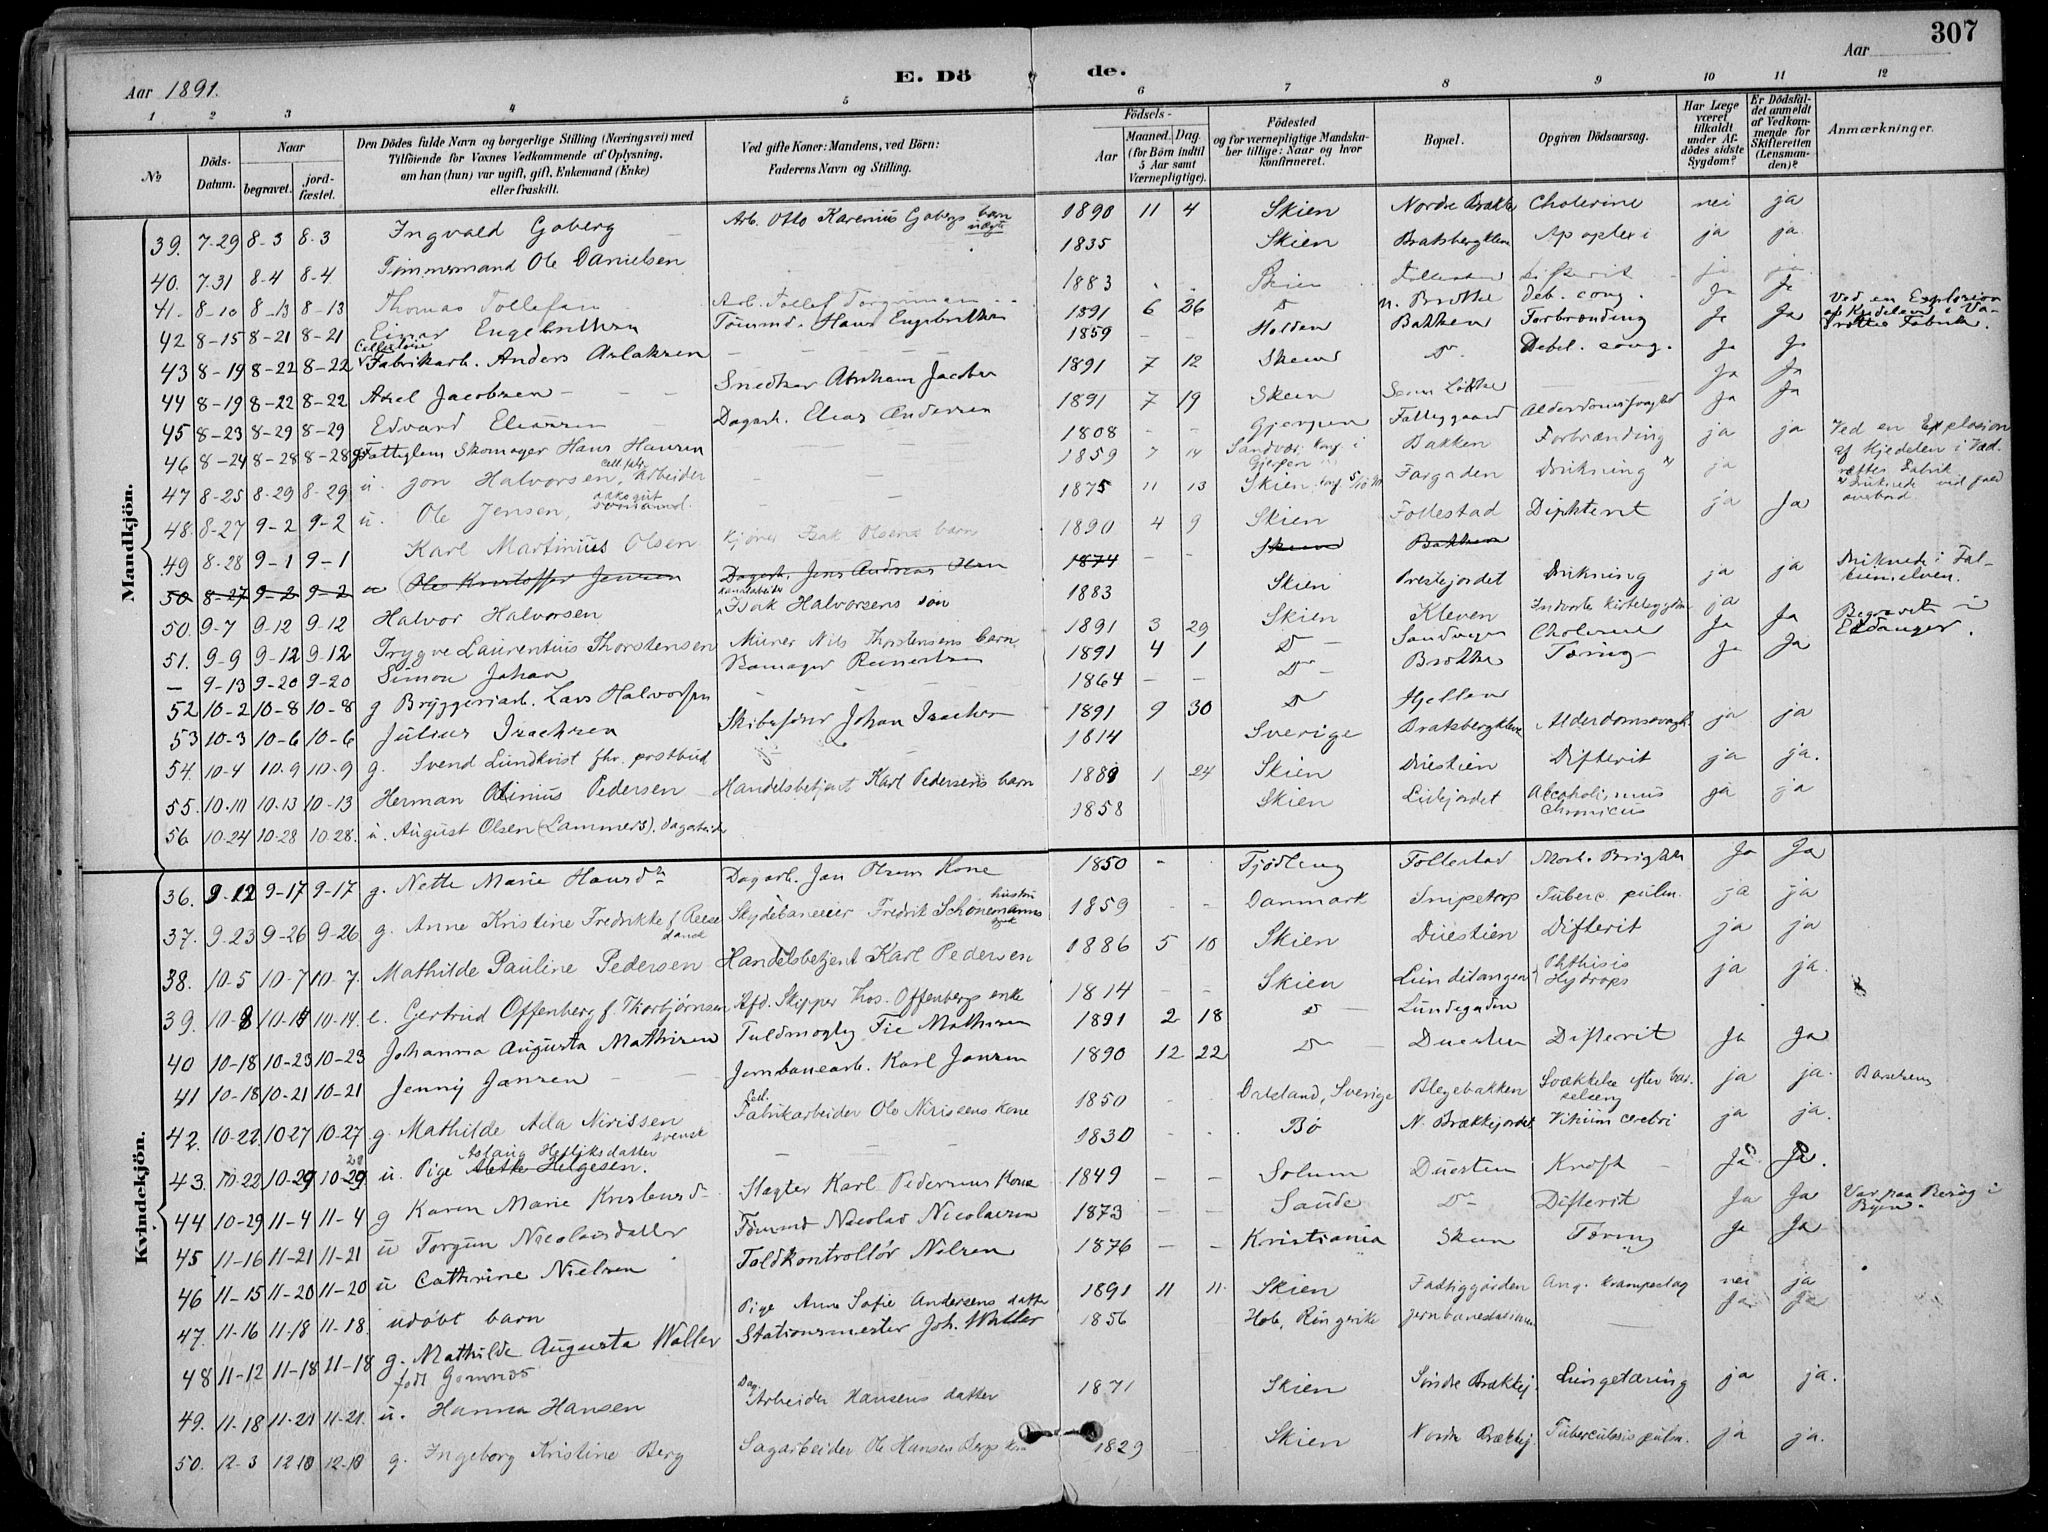 307
Aar 1891.
E. Dö de.
Aar
1 2 3 4 5 6 7 8 9 10 11 12
No
Döds-Datum.
Naar
begravet. jordfæstet.
Den Dödes fulde Navn og borgerlige Stilling (Næringsvei) med Tilföiende for Voxnes Vedkommende af Oplysning, om han (hun) var ugift, gift, Enkemand (Enke) eller fraskilt.
Ved gifte Koner: Mandens, ved Börn: Faderens Navn og Stilling.
Födsels-
Aar Maaned. Dag.
(for Börn indtil 5 Aar samt Værnepligtige).
Födested og for værnepligtige Mandskaber tillige: Naar og hvor konfirmeret.
Bopæl.
Opgiven Dödsaarsag.
Har Læge været tilkaldt under Afdödes sidste Sygdom?
Er Dödsfaldet anmeldt af Vedkommende for Skifteretten (Lensmanden)?
Anmærkninger.
Mandkjön.
39. 7-29 8-3 8-3 Ingvald Goberg Arb. Otto Karenius Gobergs barn 1890 11 4 Skien Nordre Brække Cholerine nei ja
40. 7.31 8-4 8-4 Tömmermand Ole Danielsen 1835 Skien Bratsbergkleve Apoplexi ja ja
41. 8-10 8-13 8-13 Thomas Tollefsen Arb. Tollef 1883 Skien
42 8-15 8-21 8-21 Einar Engebrethsen Tömmd. Hans Engebrethsen 1891 6 26 Do Deb. cong. Ja Ja
43 8-19 8-22 8-22 Cellulose Fabrikarb. Anders Aslaksen 1859 - - Holden Bakken Forbrænding Ja Ja Ved en Explosion af Kjedelen i Fabrik.
44 8-19 8-22 8-22 Axel Jacobsen Snedker Abraham Jacobsen 1891 7 12 Skien Do. Debil. cong. Ja Ja
45 8-23 8-29 8-29 Edvard Eliassen Dagarb. Elias Andersen 1891 7 19 Skien Ja Ja
46 8-24 8-28 8-28 Fattiglem Skomager Hans Hansen 1808 - - Gjerpen Fattiggaard Alderdomssvaghed Ja Ja
47 8-25 8-29 8-29 u. Jon Halvorsen, Arbeider 1859 7 14 Konf. i Gjerpen Bakken Forbrænding ja ja Ved en Explosion af Kjedelen i Fabrik
48. 8-27 9-2 9-2 u. Ole Jensen, sømand. 1875 11 13 Skien Fargaden Drukning ja Druknede ved fald overbord.
49 8-28 9-1 9-1 Karl Martinius Olsen Isak Olsens barn 1890 4 9 Skien Follestad Diphterit ja Ja
50 8-27 9-2 9-2 Ole Kristoffer Jensen Dagarb. Jens Andreas Olsen 1874 - - Skien Bakken
50. 9-7 9-12 9-12 Halvor Halvorsen Isak Halvorsens sön 1883 Skien Prestejordet Drukning ja ja Druknede i Falkumelven.
51. 9-9 9-12 9-12 Trygve Laurentius Thorstensen Murer Nils Thorstensens barn 1891 3 29 Skien Kleven ja
— 9-13 9-20 9-20 Simon Johan 1891 4 1 Do Cholerine Ja Ja Begravet i Eidanger.
52 10-2 10-8 10-8 g Bryggeriarb. Lars Halvorsen 1864 - - Do Brække Tæring Ja Ja
53 10-3 10-6 10-6 Julius Isachsen Skibsförer Johan Isachsen 1891 9 30 Do Hjellen
54. 10-4 10.9 10-9 g. Svend Lundkvist fhv. postbud 1814 Sverige Bratsbergkleve Alderdomssvagh. ja ja
55. 10-10 10-13 10-13 Herman Olinius Pedersen Handelsbetjent Karl Pedersens barn 1889 1 24 Skien Duestien Difterit ja ja.
56. 10-24 10-28 10-28. u. August Olsen (Lammers), dagarbeider 1858 Skien Liejordet Alcoholismus chronicus ja ja
Kvindekjön.
36. 9-12 9-17 9-17 g. Nette Marie Hansdr Dagarb. Jan Olsens Kone 1850 - - Tjödling Follestad Morb. Brightii Ja Ja
37. 9-23 9-26 9-26 g. Anne Kristine Fredrikke f. Reese dansk Skydebaneeier Fredrik Schönemanns hustru 1859 - - Danmark Snipetorp Tuberc. pulm. ja ja
38. 10-5 10-7 10-7. Mathilde Pauline Pedersen Handelsbetjent Karl Pedersen 1886 5 10 Skien Duestien Difterit ja ja
39. 10-8 10-14 10-14. e. Gertrud Offenberg f. Thorbjørnsen Afd. Skipper Hos. Offenbergs enke 1814 - - Skien Lundetangen Phthisis Hydrops ja ja.
40 10-18 10-23 10-23 Johanna Augusta Mathisen Fuldmægtig Mathisen 1891 2 18 Do Lundegaden
41 10-18 10-21 10-21 Jenny Jansen Jernbanearb. Karl Jansen 1890 12 22 Do Duestien Difterit Ja Ja
42. 10-22 10-27 10-27 g. Mathilde Ada Nirissen svensk Cell. Fabrikarbeider Ole Nirissens kone 1850 - - Dalsland, Sverige Blegebakken Svækkelse efter barselseng ja ja.
43. 10-22 10-29 10-29 u. Pige Aslaug Helliksdatter Mette Helgesen. 1830 - - Bö N. Brækkejordet Vitium cordis ja ja.
44 10-29 11-4 11-4 g Karen Marie Kristensd Slagter Karl Pedersens Kone 1849 - - Solum Duestien Kræft Ja Ja.
45 11-16 11-21 11-21 u Torgun Nicolaisdatter Tömmd Nicolai Nicolaisen 1873 - - Saude Do Difterit Ja Ja Var paa Besög i Byen.
46 11-15 11-20 11-20 u Cathrine Nielsen Toldkontrollör Nilsen 1876 - - Kristiania Skien Tæring Ja Ja
47. 11-16 11-18 11-18. udöbt barn Pige Anne Sofie Andersens datter 1891 11 11. Skien Fattiggården Ang. krampeslag nei ja
48 11-12 11-18 11-18 g. Mathilde Augusta Waller född Stationsmester Joh. Waller 1856 Hole, Ringerike jernbanestationen Ja Ja
49. 11-18 11-21 11-21. u. Hanna Hansen Dag Arbeider Hansens datter 1871 Skien Söndre Brækkej. Lungetæring ja ja.
50. 12-3 12-10 12-10 g. Ingeborg Kristine Berg Sagarbeider Ole Hansen Bergs kone 1829 Skien Nordre Brækkej. Tuberculosis pulm. ja ja.